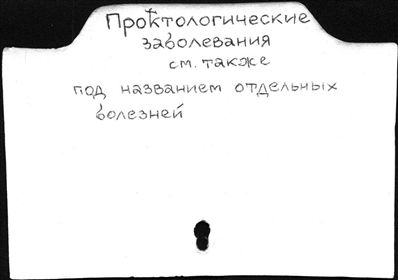 Проктологические
заболевания
см. также
под названием отдельных
болезней